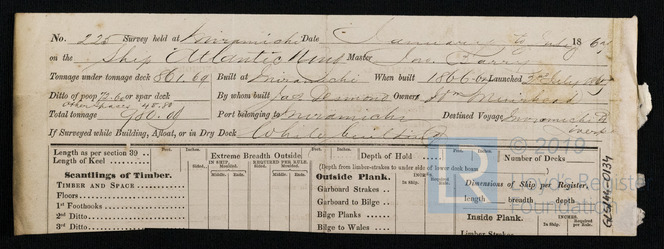 No. 225 Survey held at Miramichi Date January to July 1867
on the Ship Atlantic Master Jas Barry
Tonnage under tonnage deck 861.69 Built at Miramichi When built 1866-67 Launched July
Ditto of poop 72.60 or spar deck By whom built Jas Desmond Owners Wm Muirhead
Other spaces 45.80
Total tonnage 980.09 Port belonging to Miramichi Destined Voyage Miramichi to
If Surveyed while Building, Afloat, or in Dry Dock While building
Length as per section 39
Length of Keel
Feet. Inches.
Extreme Breadth Outside
Feet. Inches.
Depth of Hold
Feet. Inches.
Number of Decks
Scantlings of Timber.
TIMBER AND SPACE
Floors
1st Foothooks
2nd Ditto
3rd Ditto
INCHES IN SHIP.
Sided. Middle. Ends.
INCHES REQUIRED PER RULE.
Sided. Middle. Ends.
(Depth from limber-strakes to under side of lower deck house
Outside Plank.
Garboard Strakes
Garboard to Bilge
Bilge Planks
Bilge to Wales
Dimensions of Ship per Register,
length breadth depth
Inside Plank.
Limber Strakes
© 2019
LR
Lloyd's Register
Foundation